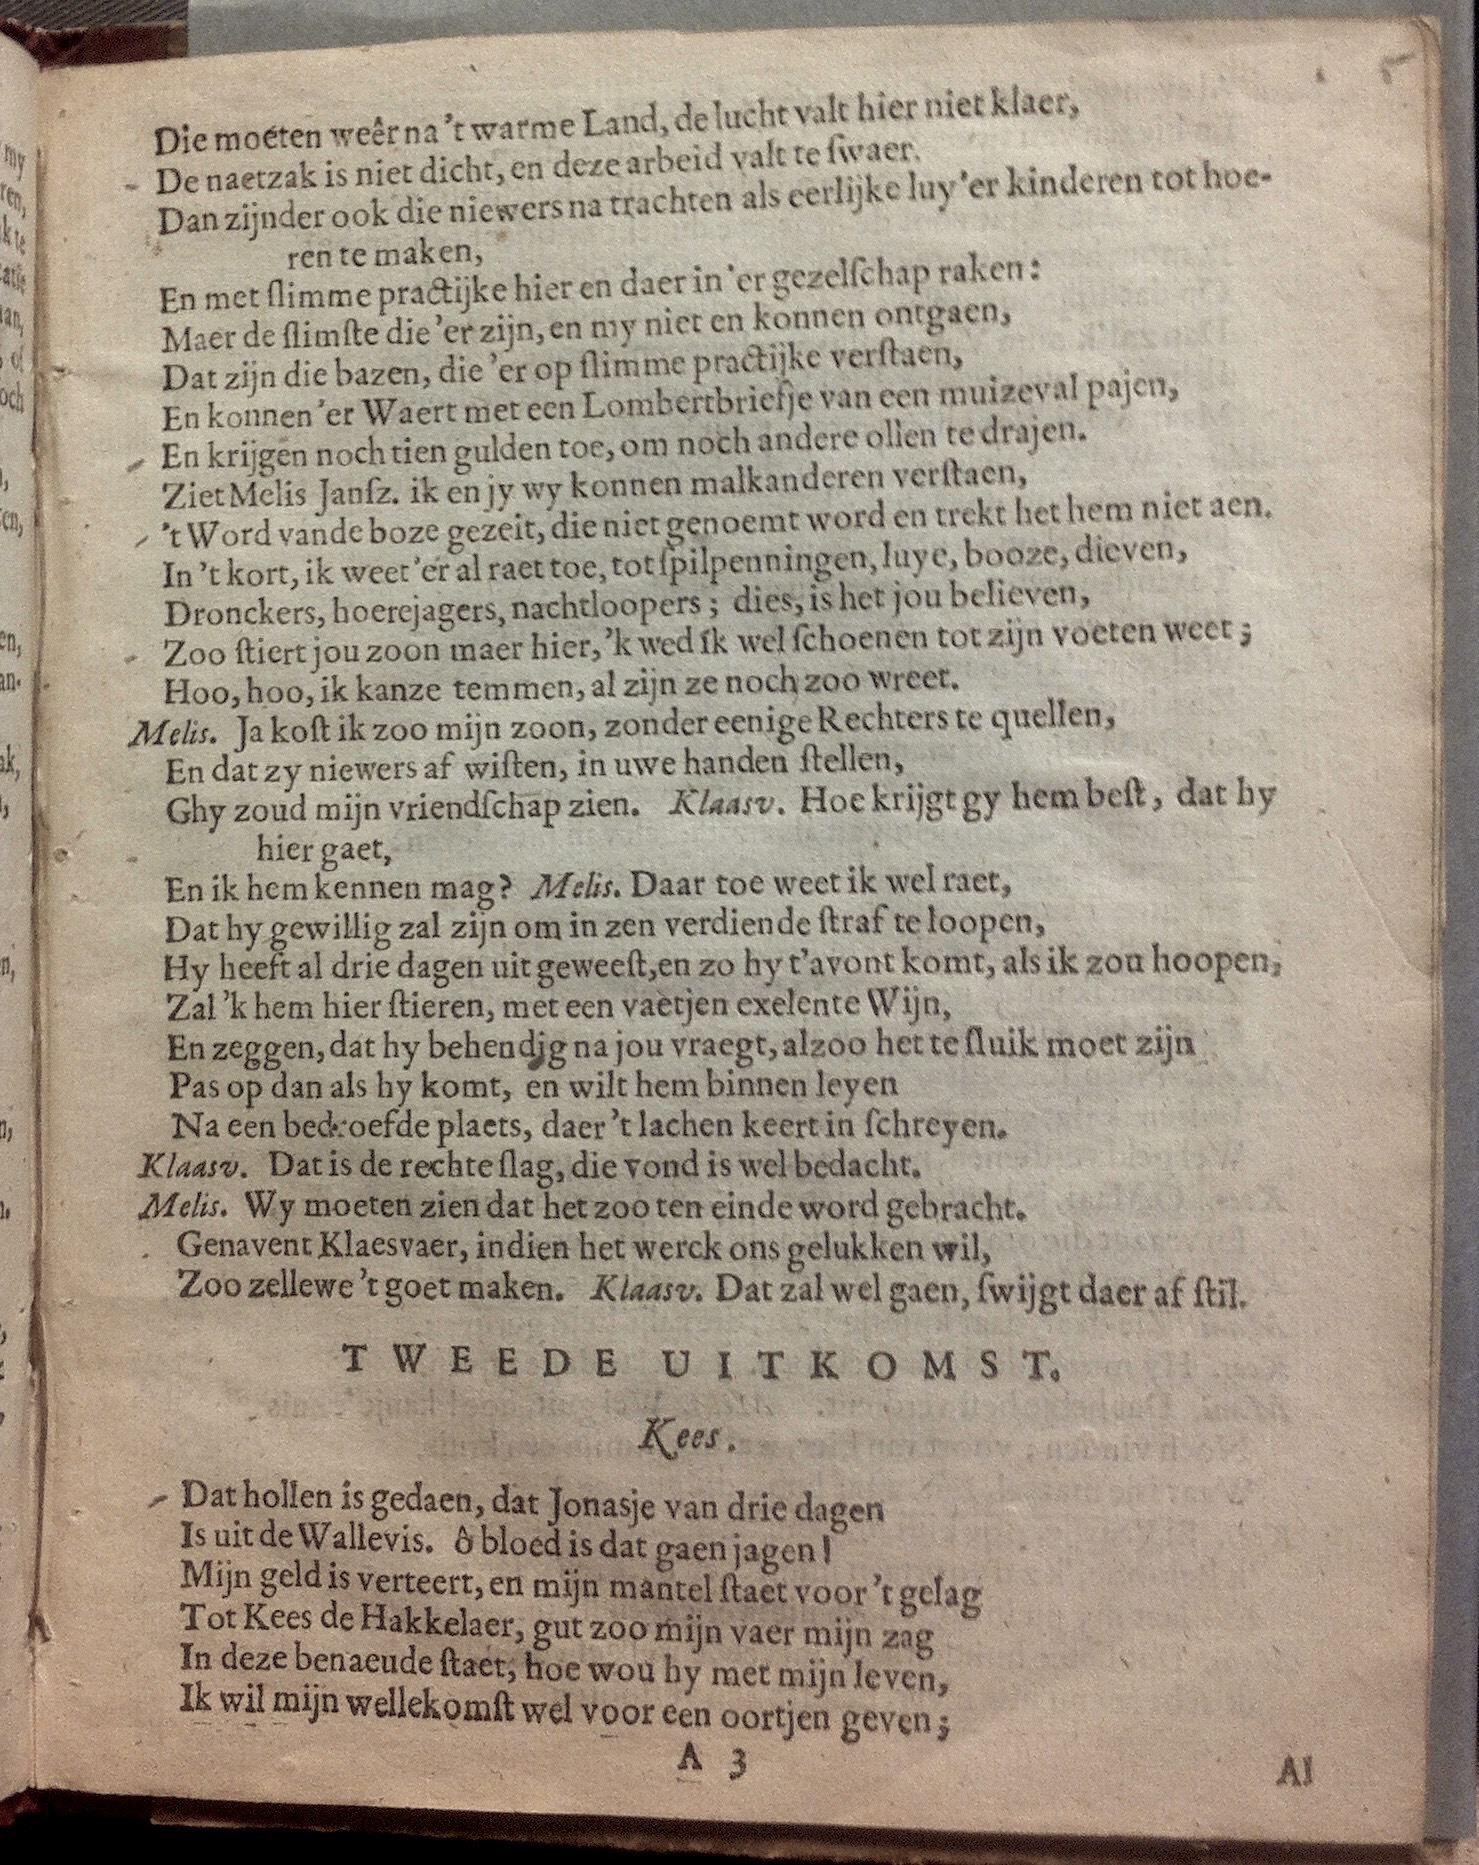 Die moeten weêr na 't warme Land, de lucht valt hier niet klaer,
De naetzak is niet dicht, en deze arbeid valt te ſwaer.
Dan zijnder ook die niewers na trachten als eerlijke luy 'er kinderen tot hoe-
ren te maken,
En met ſlimme practijke hier en daer in 'er gezelſchap raken:
Maer de ſlimſte die 'er zijn, en my niet en konnen ontgaen,
Dat zijn die bazen, die 'er op ſlimme practijke verſtaen,
En konnen 'er Waert met een Lombertbriefje van een muizeval pajen,
En krijgen noch tien gulden toe, om noch andere ollen te drajen.
Ziet Melis Janſz. ik en jy wy konnen malkanderen verſtaen,
't Word vande boze gezeit, die niet genoemt word en trekt het hem niet aen.
In 't kort, ik weet 'er al raet toe, tot ſpilpenningen, luye, booze, dieven,
Dronckers, hoerejagers, nachtloopers; dies, is het jou believen,
Zoo ſtiert jou zoon maer hier, 'k wed ik wel ſchoenen tot zijn voeten weet;
Hoo, hoo, ik kanze temmen, al zijn ze noch zoo wreet.
Melis. Ja koſt ik zoo mijn zoon, zonder eenige Rechters te quellen,
En dat zy niewers af wiſten, in uwe handen ſtellen,
Ghy zoud mijn vriendſchap zien. Klaasv. Hoe krijgt gy hem beſt, dat hy
hier gaet,
En ik hem kennen mag? Melis. Daar toe weet ik wel raet,
Dat hy gewillig zal zijn om in zen verdiende ſtraf te loopen,
Hy heeft al drie dagen uit geweeſt, en zo hy t'avont komt, als ik zou hoopen,
Zal 'k hem hier ſtieren, met een vaetjen exelente Wijn,
En zeggen, dat hy behendig na jou vraegt, alzoo het te ſluik moet zijn
Pas op dan als hy komt, en wilt hem binnen leyen
Na een bedroefde plaets, daer 't lachen keert in ſchreyen.
Klaasv. Dat is de rechte ſlag, die vond is wel bedacht.
Melis. Wy moeten zien dat het zoo ten einde word gebracht.
Genavent Klaesvaer, indien het werck ons gelukken wil,
Zoo zellewe 't goet maken. Klaasv. Dat zal wel gaen, ſwijgt daer af ſtil.
TWEEDE UITKOMST.
Kees.
Dat hollen is gedaen, dat Jonasje van drie dagen
Is uit de Wallevis. ô bloed is dat gaen jagen!
Mijn geld is verteert, en mijn mantel ſtaet voor 't gelag
Tot Kees de Hakkelaer, gut zoo mijn vaer mijn zag
In deze benaeude ſtaet, hoe wou hy met mijn leven,
Ik wil mijn wellekomſt wel voor een oortjen geven;
A 3
Al